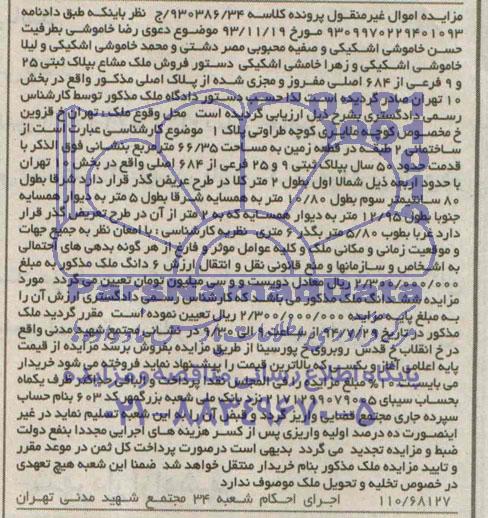 مزایده اموال غیرمنقول پرونده کلاسه ۹۳۰۳۸۶/۳۴/ج نظر باینکه طبق دادنامه
۹۳۰۹۹۷۰۲۲۹۴۰۱۰۹۳ مورخ ۹۳/۱۱/۱۹ موضوع دعوی رضا خاموشی بطرفیت
حسن خاموشی اشکیکی و صفیه محبوبی مصر دشتی و محمد خاموشی اشکیکی و لیلا
خاموشی اشکیکی و زهرا خامشی اشکیکی دستور فروش ملک مشاع بپلاک ثبتی ۲۵
و ۹ فرعی از ۶۸۴ اصلی مفروز و مجزی شده از پلاک اصلی مذکور واقع در بخش
۱۰ تهران صادر گردیده است لذا حسب دستور دادگاه ملک مذکور توسط کارشناس
رسمی دادگستری بشرح ذیل ارزیابی گردیده است محل وقوع ملک: تهران خ قزوین
خ مخصوص کوچه ملایری کوچه طراوتی پلاک ۱ موضوع کارشناسی عبارت است از
ساختمانی ۲ طبقه در قطعه زمین به مساحت ۶۶/۳۵ مترمربع بنشانی فوق الذکر با
قدمت حدود ۵۰ سال بپلاک ثبتی ۹ و ۲۵ فرعی از ۶۸۴ اصلی واقع در بخش ۱۰ تهران
با حدود اربعه ذیل شمالا اول بطول ۲ متر کلا در طرح عریض گذر قرار دارد شرقا بطول
۸۰ سانتیمتر سوم بطول ۱۰/۸۰ متر به همسایه شرقا بطول ۵ متر به دیوار همسایه
جنوبا بطول ۱۲/۹۵ متر به دیوار همسایه که به ۲ متر از آن در طرح تعریض گذر قرار
دارد غربا بطوب ۵/۸۰ متر بگذر ۶ متری. نظریه کارشناسی: با امعان نظر به جمیع جهات
و موقعیت زمانی و مکانی ملک و کلیه عوامل موثر و فارغ از هر گونه بدهی های احتمالی
به اشخاص و سازمانها و منع قانونی نقل و انتقال ارزش ۶ دانگ ملک مذکور به مبلغ
۲/۳۰۰/۰۰۰/۰۰۰ ریال معادل دویست و سی میلیون تومان تعیین می گردد مورد
مزایده ششدانگ ملک مذکور می باشد که کارشناس رسمی دادگستری ارزش آن را
به مبلغ پایه مزایده ۲/۳۰۰/۰۰۰/۰۰۰ ریال تعیین نموده است مقرر گردید ملک
مذکور در تاریخ ۹۴/۷/۲ از ساعت ۹ الی ۹/۳۰ در نشانی مجتمع شهید مدنی واقع
در خ انقلاب خ قدس روبروی خ پورسینا از طریق مزایده بفروش برسد مزایده از قیمت
پایه اعلامی آغاز و بکسی که بالاترین قیمت را پیشنهاد نماید فروخته می شود خریدار
می بایست ۱۰٪ مبلغ مزایده را فی المجلس نقدا پرداخت و الباقی حداکثر ظرف یکماه
سپرده جاری مجتمع قضایی واریز گردد و قبض آن را به این شعبه تسلیم نماید در غیر
اینصورت ده درصد اولیه واریزی پس از کسر هزینه های اجرایی مجددا بنفع دولت
ضبط و مزایده تجدید می گردد بدیهی است درصورت پرداخت کل ثمن در موعد مقرر
و تایید مزایده ملک مذکور بنام خریدار منتقل خواهد شد ضمنا این شعبه هیچ تعهدی
در خصوص تخلیه و تحویل ملک موصوف ندارد
۱۱۰/۶۸۱۲۷ اجرای احکام شعبه ۳۴ مجتمع شهید مدنی تهران